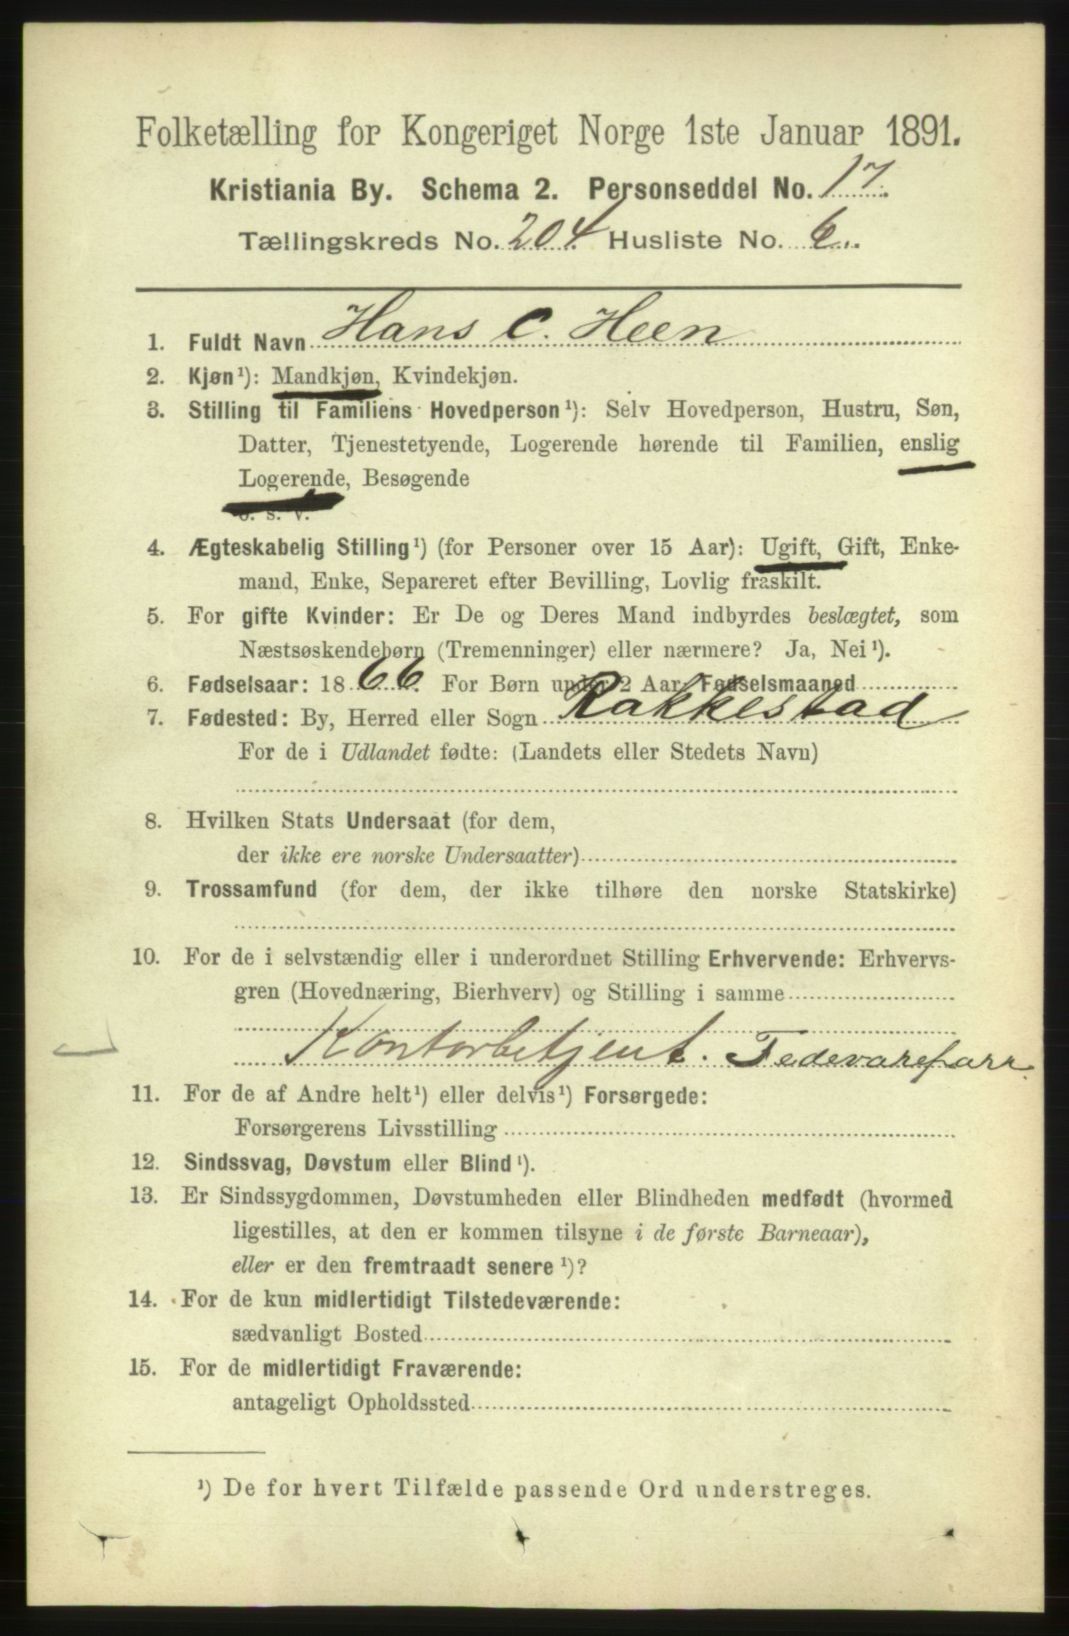 Folketælling for Kongeriget Norge 1ste Januar 1891.
Kristiania By. Schema 2. Personseddel No. 17.
Tællingskreds No. 204 Husliste No. 6.
1. Fuldt Navn Hans C. Heen
2. Kjøn¹): Mandkjøn, Kvindekjøn.
3. Stilling til Familiens Hovedperson¹): Selv Hovedperson, Hustru, Søn,
Datter, Tjenestetyende, Logerende hørende til Familien, enslig
Logerende, Besøgende
o. s. v.
4. Ægteskabelig Stilling¹) (for Personer over 15 Aar): Ugift, Gift, Enke-
mand, Enke, Separeret efter Bevilling, Lovlig fraskilt.
5. For gifte Kvinder: Er De og Deres Mand indbyrdes beslægtet, som
Næstsøskendebørn (Tremenninger) eller nærmere? Ja, Nei¹).
6. Fødselsaar: 1866. For Børn under 2 Aar: Fødselsmaaned
7. Fødested: By, Herred eller Sogn Rakkestad
For de i Udlandet fødte: (Landets eller Stedets Navn)
8. Hvilken Stats Undersaat (for dem,
der ikke ere norske Undersaatter)
9. Trossamfund (for dem, der ikke tilhøre den norske Statskirke)
10. For de i selvstændig eller i underordnet Stilling Erhvervende: Erhvervs-
gren (Hovednæring, Bierhverv) og Stilling i samme
Kontorbetjent. Fedevareforr.
11. For de af Andre helt¹) eller delvis¹) Forsørgede:
Forsørgerens Livsstilling
12. Sindssvag, Døvstum eller Blind¹).
13. Er Sindssygdommen, Døvstumheden eller Blindheden medfødt (hvormed
ligestilles, at den er kommen tilsyne i de første Barneaar),
eller er den fremtraadt senere¹)?
14. For de kun midlertidigt Tilstedeværende:
sædvanligt Bosted
15. For de midlertidigt Fraværende:
antageligt Opholdssted
¹) De for hvert Tilfælde passende Ord understreges.